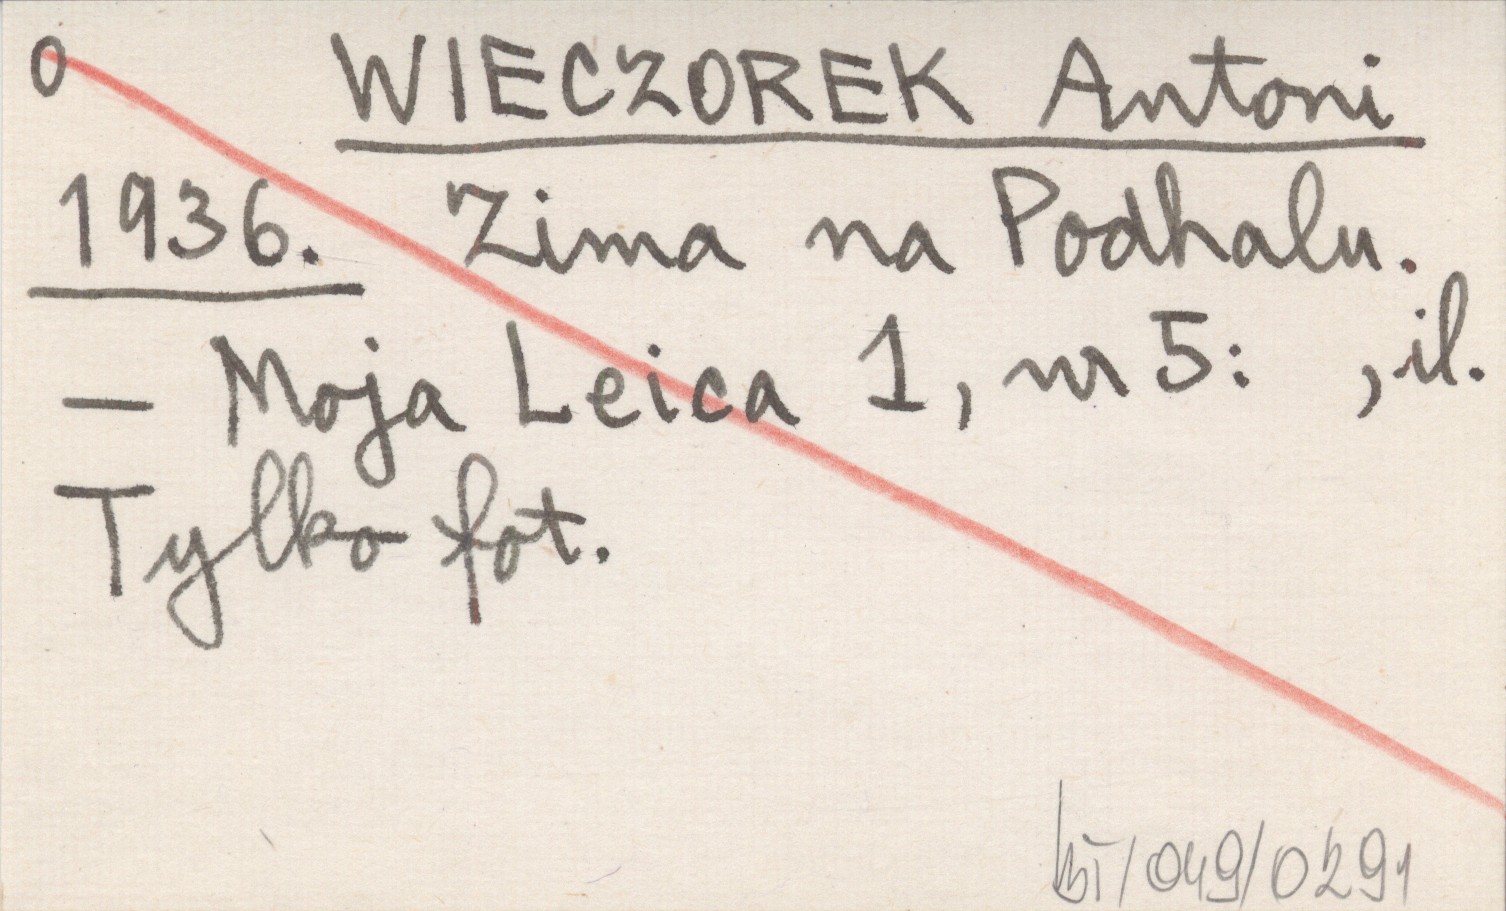 0 WIECZOREK Antoni
1936. Zima na Podhalu.
— Moja Leica 1, nr 5: , il.
Tylko fot.
/049/0291